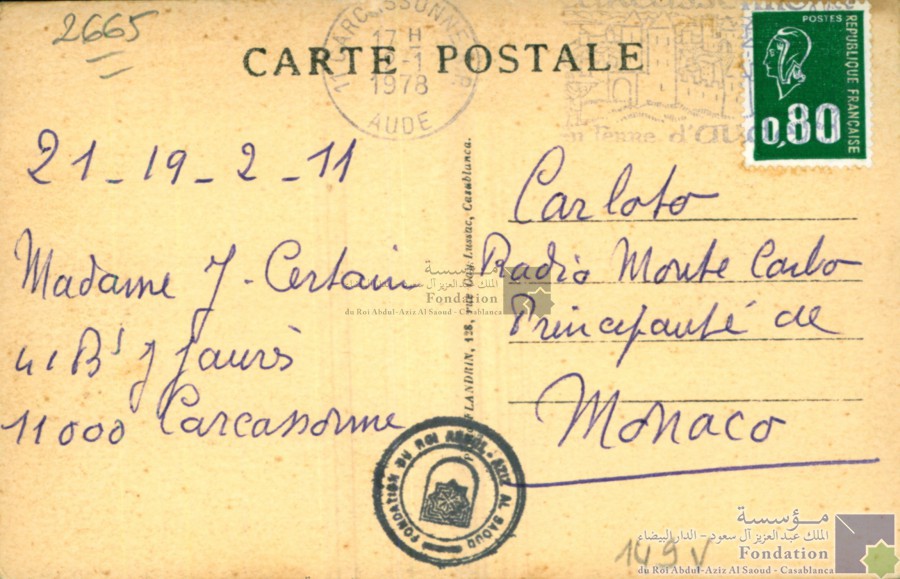 2665
CARTE POSTALE
11 CARCASSONNE
17 H
1978
AUDE
en Terre d'
POSTES
REPUBLIQUE FRANÇAISE
0,80
21 - 19 - 2 - 11
Madame J - Certain
41 Bd J Jaurès
11000 Carcassonne
FLANDRIN, 128, rue Gay-Lussac, Casablanca.
Carloto
Radio Monte Carlo
Principauté de
Monaco
مؤسسة
الملك عبد العزيز آل سعود
Fondation
du Roi Abdul-Aziz Al Saoud - Casablanca
FONDATION DU ROI ABDUL-AZIZ AL SAOUD
149 V
مؤسسة
الملك عبد العزيز آل سعود - الدار البيضاء
Fondation
du Roi Abdul-Aziz Al Saoud - Casablanca